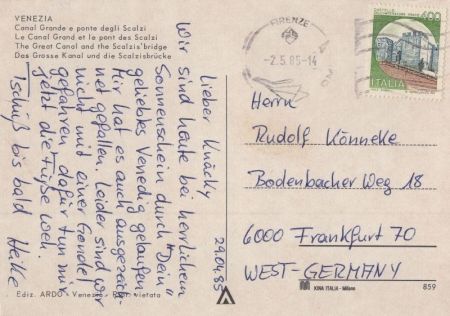 VENEZIA
Canal Grande e ponte degli Scalzi
Le Canal Grand et le pont des Scalzi
The Great Canal and the Scalzis'bridge
Das Grosse Kanal und die Scalzisbrücke
29.04.85
Lieber Knücky
Wir sind heute bei herrlichem
Sonnenschein durch "Dein"
geliebtes Venedig gelaufen.
Mir hat es auch ausgezeich-
net gefallen. Leider sind wir
nicht mit einer Gondel
gefahren dafür tun mir
jetzt die Füße weh.
Tschüß bis bald Heike
FIRENZE
-2.5.85-14
400
ITALIA
Herrn
Rudolf Könneke
Bodenbacher Weg 18
6000 Frankfurt 70
WEST-GERMANY
Ediz. ARDO - Venezia - Rip. vietata
KINA ITALIA - Milano
859